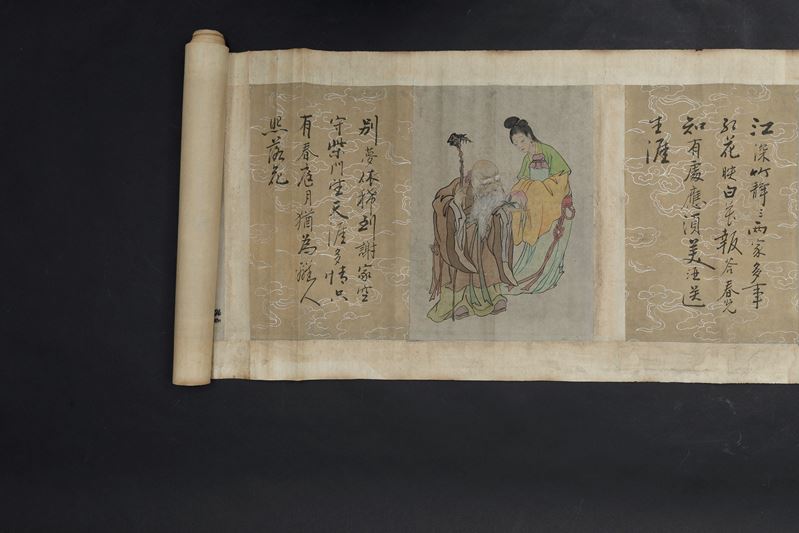 江深竹靜三兩家多事
紅花映白花報答春光
知有處應須美酒送
生涯
別夢依稀到謝家空
守柴門天涯多情只
有春庭月猶為離人
照落花